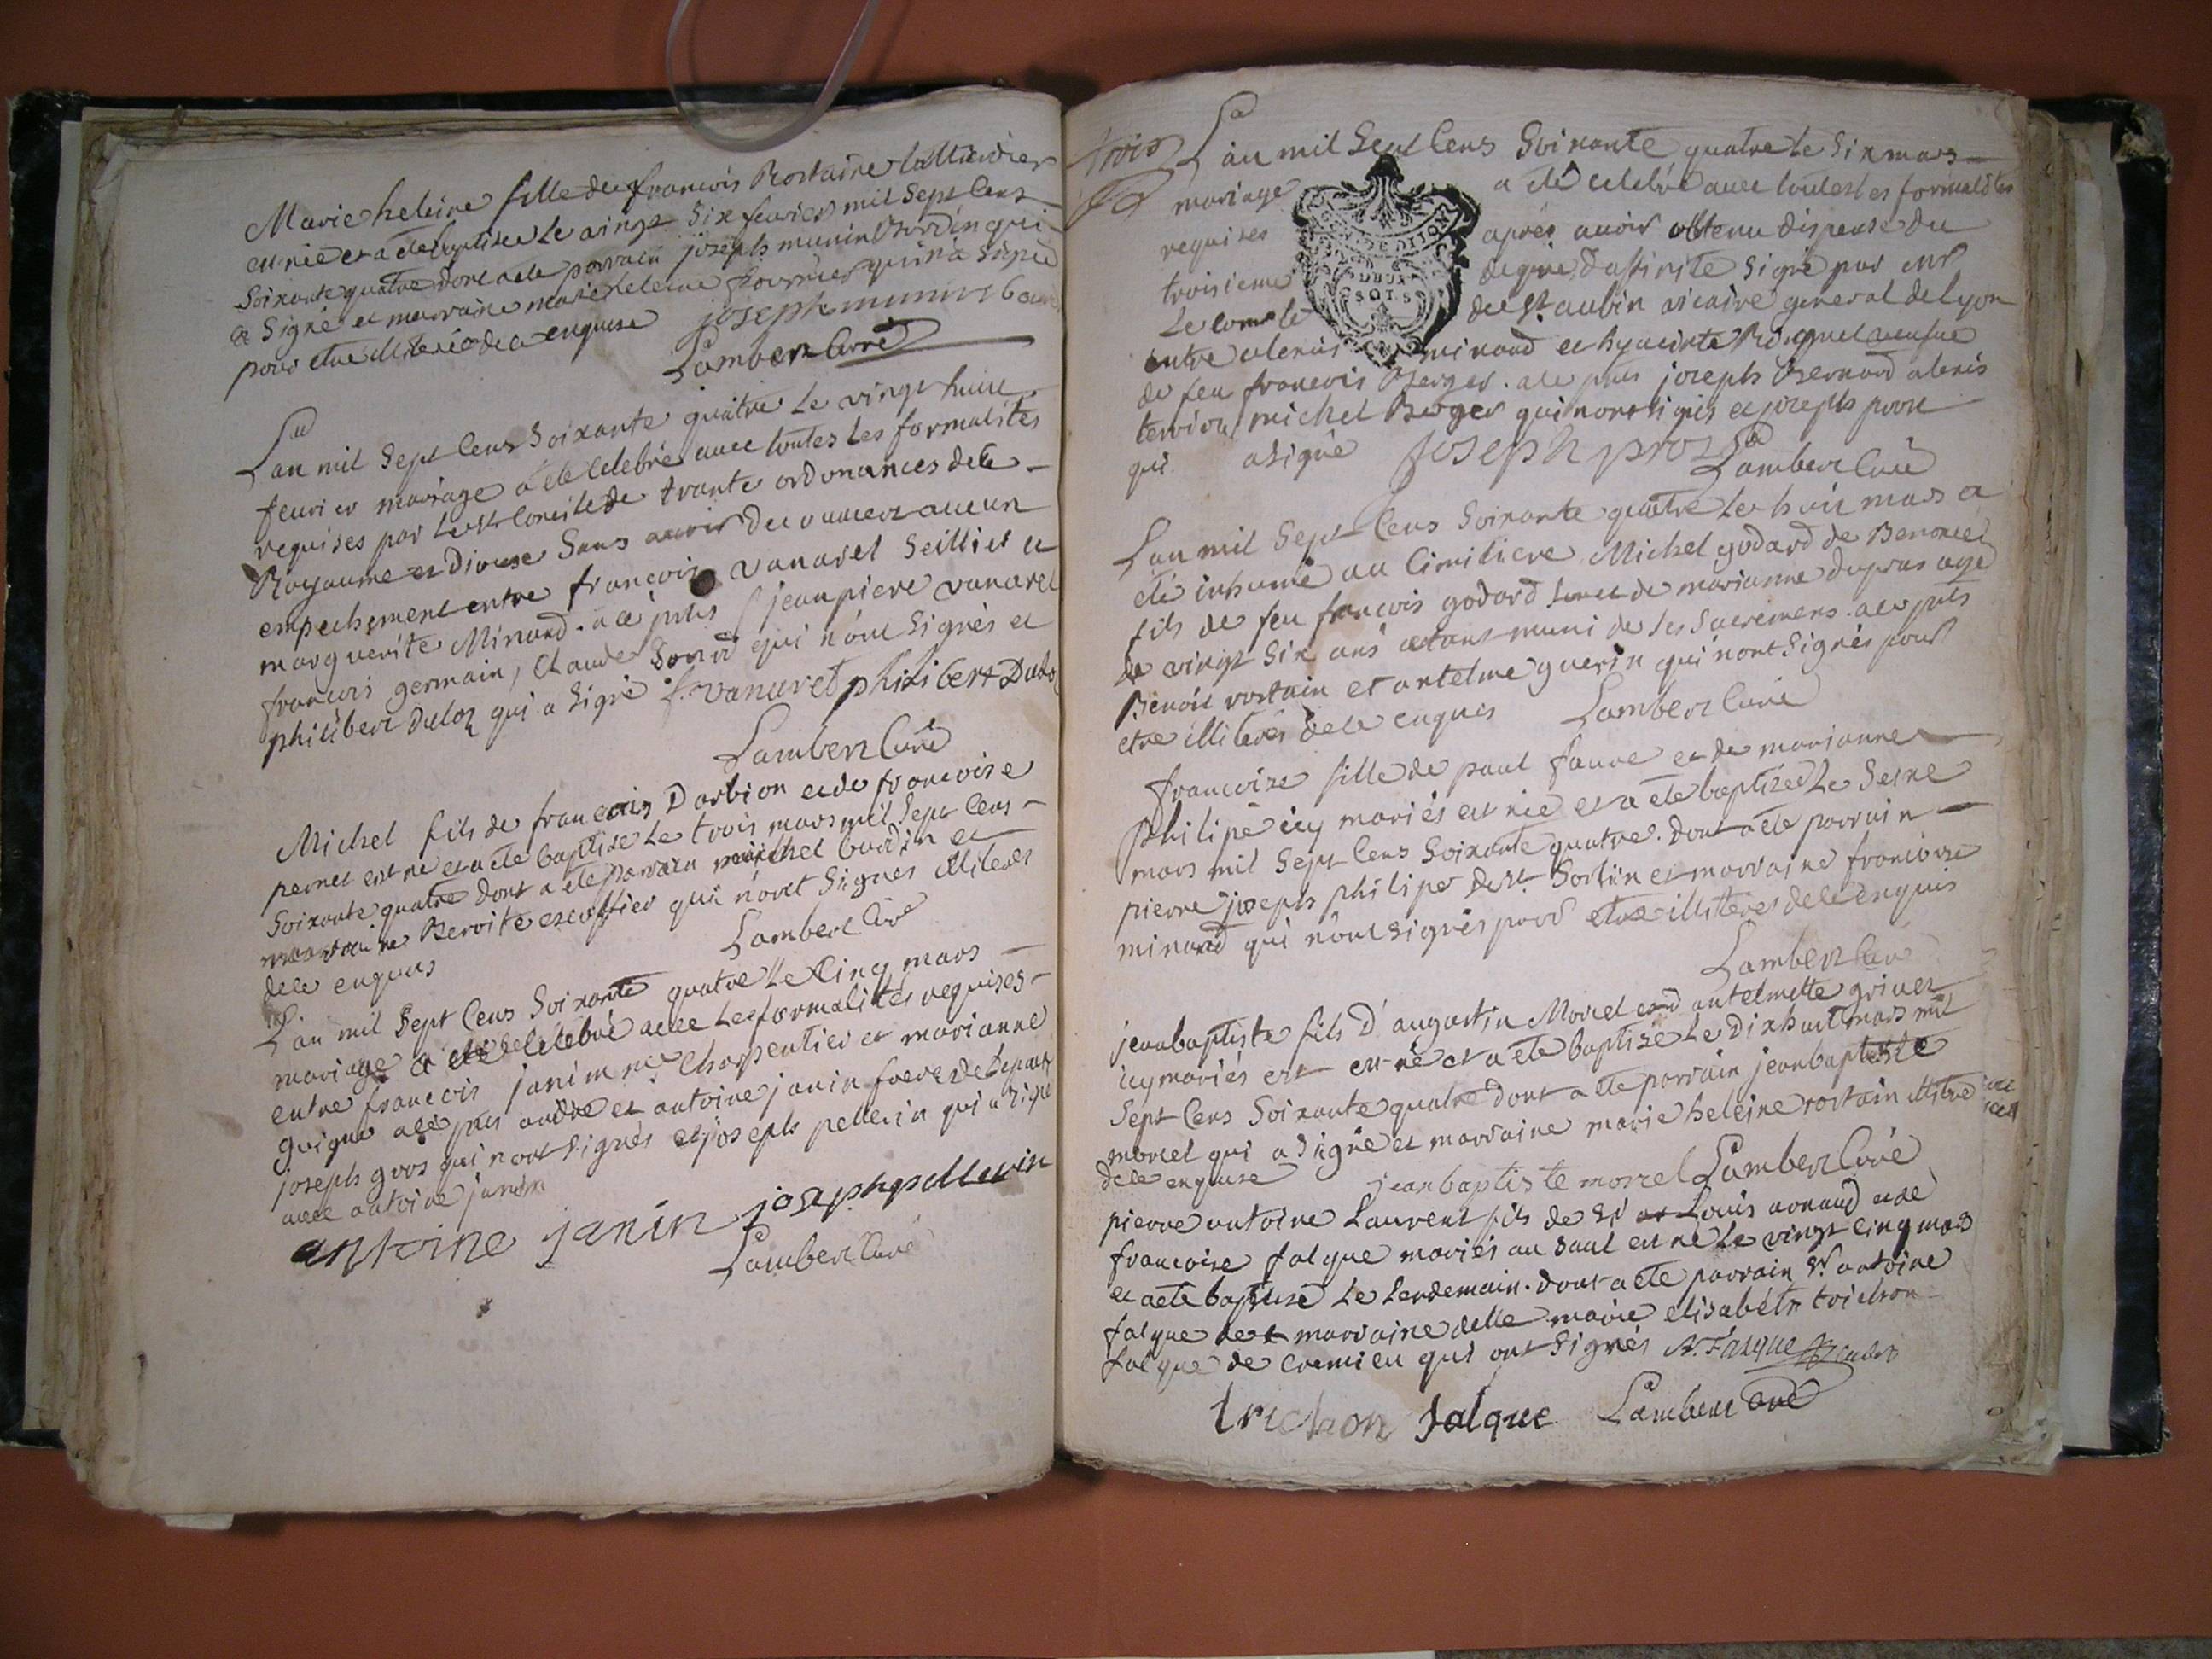 Marie heleine fille de françois Rostaine
est née et a été baptisée le vingt Six fevrier mil Sept Cens
Soixante quatre dont a été parrain joseph munin Bordin qui
a Signé et marraine marie heleine fournier qui n'a Signé
pour etre illiterée de ce enquise joseph munin
Lambert Curé
L'an mil Sept Cens Soixante quatre Le vingt huit
fevrier mariage a été Celebré avec toutes Les formalités
requises par Le St Concile de trante ordonances de Ce
Royaume et Diocese Sans avoir decouvert aucun
empechement entre françois vanarel Seillier et
marguerite Minand. a ce pnts jean piere vanarel
françois germain, Claude qui n'ont Signés et
philibert duloz qui a Signé f. vanaret philibert
Lambert Curé
Michel fils de françois Darbion et de françoise
pernet est né et a été baptisé Le trois mars mil Sept Cens
Soixante quatre dont a été parrain michel burdin et
marraine Benoite escoffier qui n'ont Signés illiterés
de ce enquis Lambert Curé
L'an mil Sept Cens Soixante quatre Le Cinq mars
mariage a été Celebré avec Les formalités requises
entre françois janin me Charpentier et marianne
guigue a cé pnts andré et antoine janin frere de
joseph gros qui n'ont Signés et joseph pellerin qui a Signé
avec antoine janin
antoine janin joseph pellerin
Lambert Curé
trois L'an mil Sept Cens Soixante quatre Le Six mars
mariage a été celebré avec toutes Les formalités
requises après avoir obtenu dispense du
troisieme degré d'affinité Signé par mr
Le comte de St aubin vicaire general de Lyon
entre alexis minand et hyacinte veusve
de feu françois Berger. a ce pnts joseph Bernard alexis
michel Berger qui n'ont signés et joseph
qui a signé joseph
Lambert Curé
L'an mil Sept Cens Soixante quatre Le huit mars a
été inhumé au Cimitiere Michel godard de
fils de feu françois godard et de marianne dupras agé
de vingt Six ans etant muni de Ses Sacremens. a ce pnts
Benoit rostain et antelme guerin qui n'ont Signés pour
etre illiterés de ce enquis Lambert Curé
françoise fille de paul faure et de marianne
philipe icy mariés est née et a été baptisée Le Seise
mars mil Sept Cens Soixante quatre. dont a été parrain
pierre joseph philipe de St Sorlin et marraine françoise
minand qui n'ont signés pour etre illiteres de ce enquis
Lambert Curé
jean baptiste fils d'augustin Morel et d'antelmette grivet
icy mariés est né et a été baptisé Le Dixhuit mars mil
Sept Cens Soixante quatre dont a été parrain jean baptiste
morel qui a Signé et marraine marie heleine rostain
de ce enquise jean baptiste morel Lambert Curé
pierre antoine Laurent fils de Sr Louis arnaud et de
françoise falque mariés au Saul est né Le vingt Cinq mars
et a été baptisé Le Lendemain. dont a été parrain Sr antoine
falque et marraine delle marie elisabeth trichon
falque de Cremieu qui ont Signés A. Falque
trichon falque Lambert Curé